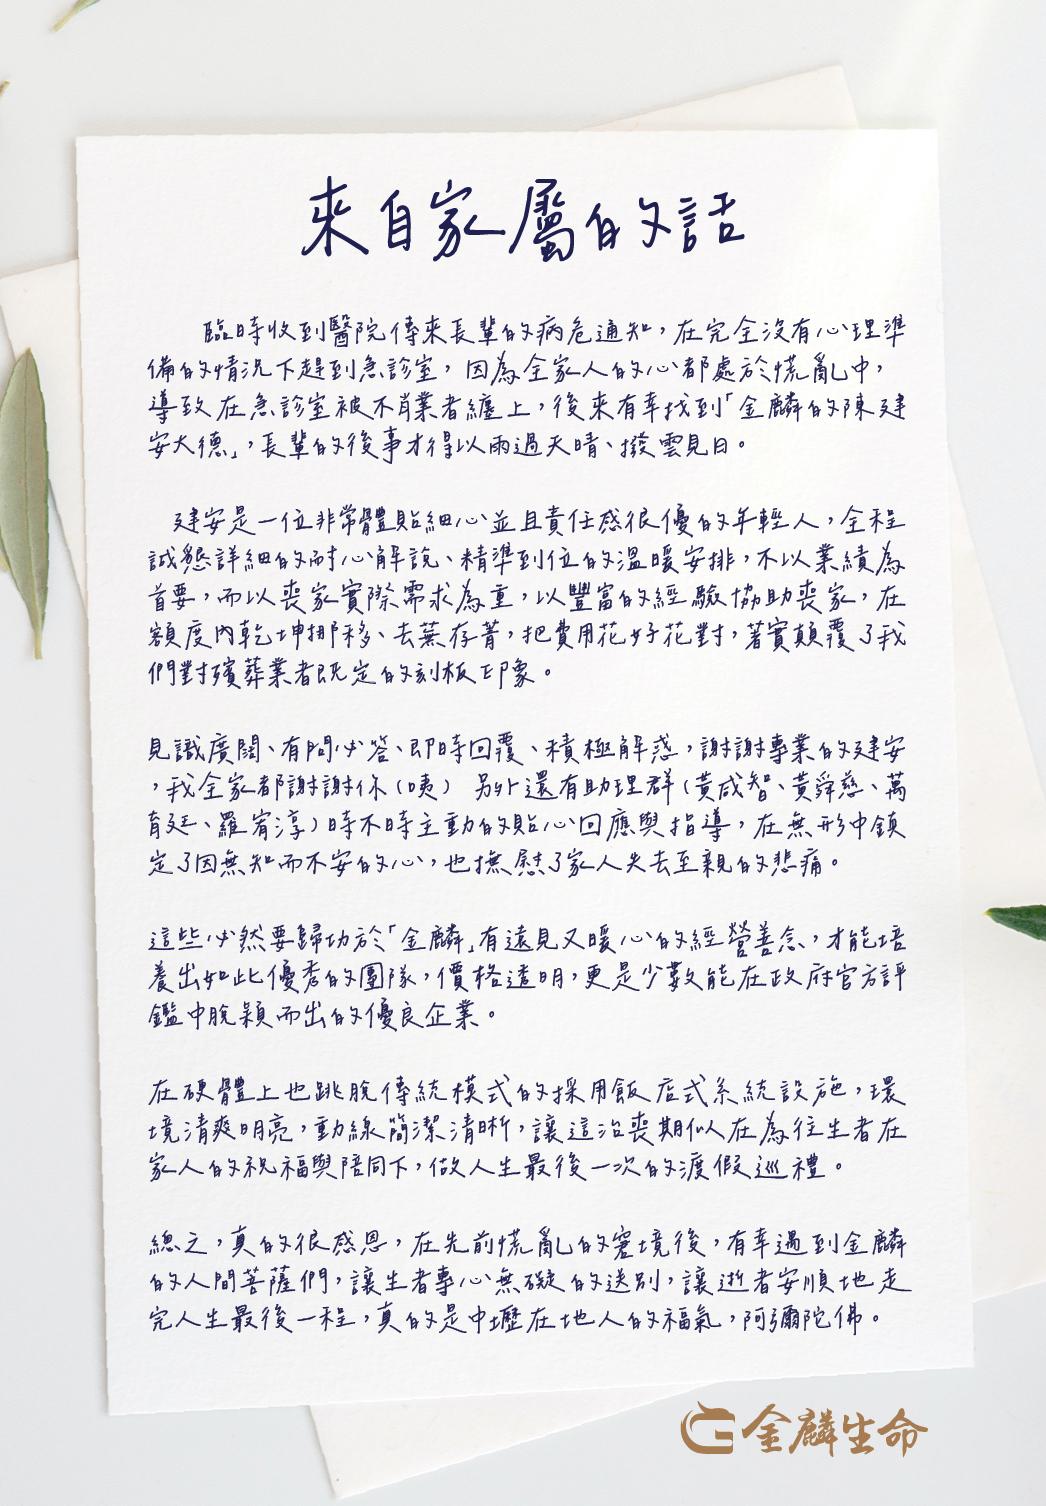 來自家屬的話
臨時收到醫院傳來長輩的病危通知，在完全沒有心理準
備的情況下趕到急診室，因為全家人的心都處於慌亂中，
導致在急診室被不肖業者纏上，後來有幸找到「金麟的陳建
安大德」，長輩的後事才得以雨過天晴、撥雲見日。
建安是一位非常體貼細心並且責任感很優的年輕人，全程
誠懇詳細的耐心解說、精準到位的溫暖安排，不以業績為
首要，而以喪家實際需求為重，以豐富的經驗協助喪家，在
額度內乾坤挪移、去蕪存菁，把費用花好花對，著實顛覆了我
們對殯葬業者既定的刻板印象。
見識廣闊、有問必答、即時回覆、積極解惑，謝謝專業的建安
，我全家都謝謝你（咦） 另外還有助理群（黃成智、黃舜慈、萬
育廷、羅宥淳）時不時主動的貼心回應與指導，在無形中鎮
定了因無知而不安的心，也撫慰了家人失去至親的悲痛。
這些必然要歸功於「金麟」有遠見又暖心的經營善念，才能培
養出如此優秀的團隊，價格透明，更是少數能在政府官方評
鑑中脫穎而出的優良企業。
在硬體上也跳脫傳統模式的採用飯店式系統設施，環
境清爽明亮，動線簡潔清晰，讓這治喪期似在為往生者在
家人的祝福與陪同下，做人生最後一次的渡假巡禮。
總之，真的很感恩，在先前慌亂的窘境後，有幸遇到金麟
的人間菩薩們，讓生者專心無礙的送別，讓逝者安順地走
完人生最後一程，真的是中壢在地人的福氣，阿彌陀佛。
金麟生命